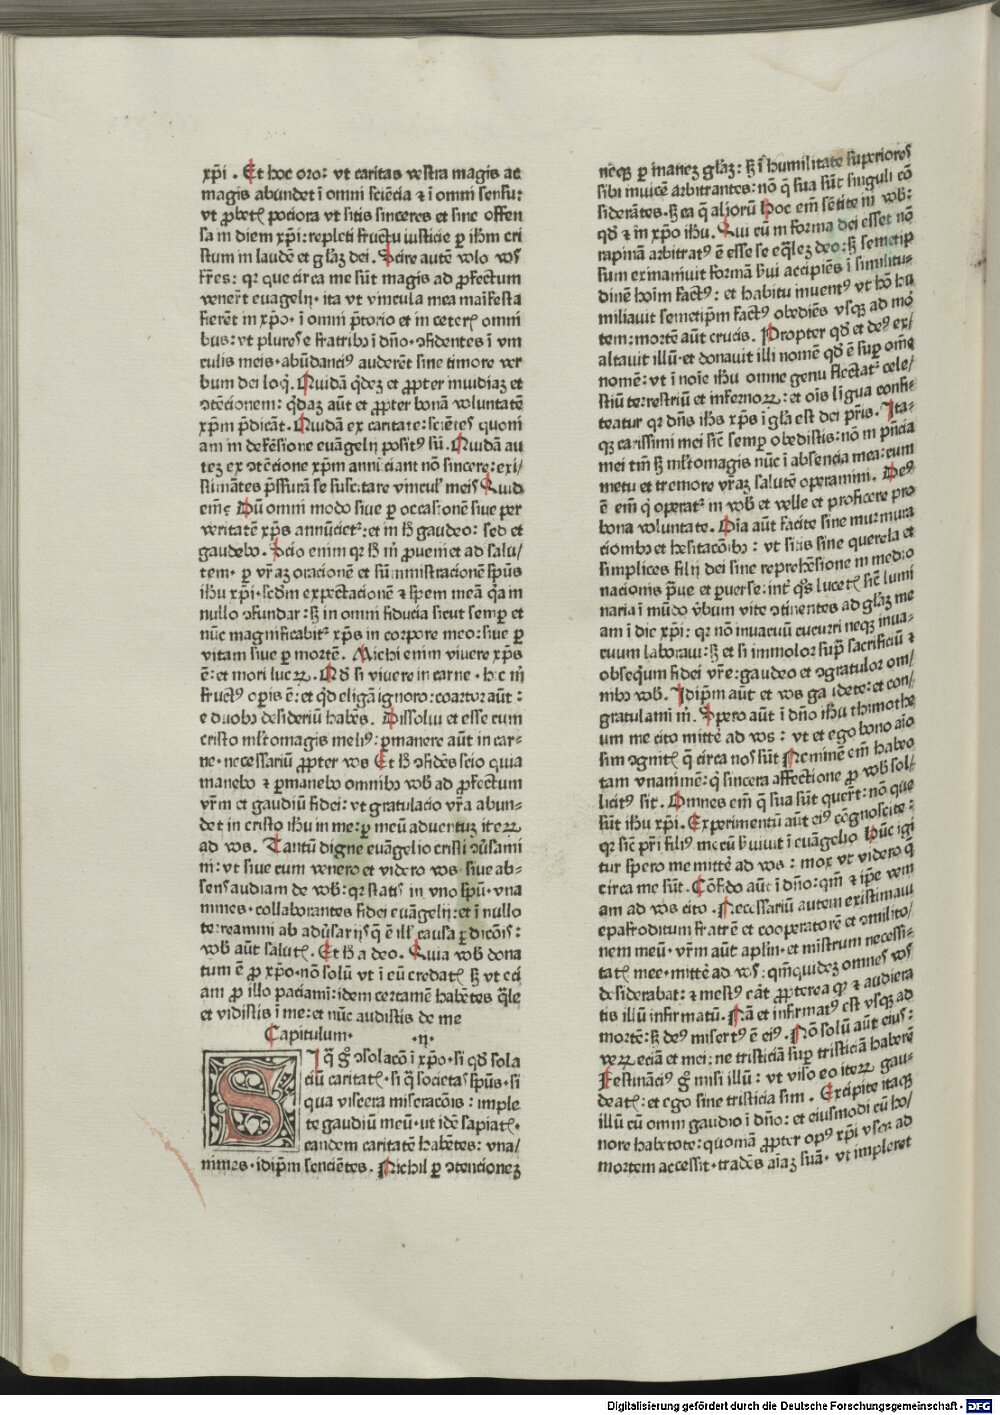 xp̄i . Et hoc oro: vt caritas vestra magis ac
magis abundet ī omni sciēcia ⁊ ī omni sensu:
vt ꝓbetꝭ pociora vt sitis sinceres et sine offen
sa in diem xp̄i: repleti fructu iusticie ꝑ ih̄m cri
stum in laudē et gl̄aꝫ dei . Scire autē volo vos
fr̄es: qꝛ que circa me sūt magis ad ꝓfectum
vener̄t evāgelij · ita vt vincula mea maīfesta
fierēt in xp̄o · ī omni p̄torio et in ceterꝭ omni
bus: vt plures e fratribꝫ ī dn̄o · ꝯfidentes ī vin
culis meis · abūdanciꝰ auderēt sine timore ver
bum dei loqͥ . Quidā qͥdeꝫ et ꝓpter inuidiaꝫ et
ꝯtēcionem: qͥdaꝫ aūt et ꝓpter bonā voluntatē
xp̄m p̄dicāt . Quidā ex caritate: sciētes quoni
am in defēsione evāgelij positꝰ sū . Quidā au
teꝫ ex ꝯtēcione xp̄m annūciant nō sincere: exi/
stimātes p̄ssurā se suscitare vinculꝭ meis Quid
em̄ꝫ Dū omni modo siue ꝑ occasionē siue per
veritatē xp̄s annūciet: et in h̄ gaudeo: sed et
gaudebo . Scio enim qꝛ h̄ m̄ ꝓueniet ad salu/
tem · ꝑ vr̄aꝫ oracionē et sūministracionē sp̄us
ih̄u xp̄i · scd̄m expectacionē ⁊ spem meā qͣa in
nullo ꝯfundar: sꝫ in omni fiducia sicut semꝑ et
nūc magnificabitᷣ xp̄s in corpore meo: siue ꝑ
vitam siue ꝑ mortē . Michi enim vivere xp̄s
ē: et mori lucꝝ . Qd̄ si vivere in carne · hic m̄
fructꝰ oꝑis ē: et qͥd eligā ignoro: coartor aūt :
e duobꝫ desideriū habēs . Dissolui et esse cum
cristo ml̄tomagis meliꝰ: ꝑmanere aūt in car-
ne · necessariū ꝓpter vos Et h̄ ꝯfidēs scio quia
manebo ⁊ ꝑmanebo omnibꝫ vob̄ ad ꝓfectum
vr̄m et gaudiū fidei: vt gratulacio vr̄a abun-
det in cristo ih̄u in me: ꝑ meū adventuꝫ iteꝝ
ad vos . Tantū digne evāgelio cristi ꝯūsami
ni: vt siue cum venero et videro vos · siue ab-
sens audiam de vob̄: qꝛ statis in vno sp̄u · vna
nimes · collaborantes fidei evāgelij: et ī nullo
terreamini ab adūsarijs q̄ ē ill̄ causa ꝑdicōis:
vob̄ aūt salutꝭ . Et h̄ a deo . Quia vob̄ dona
tum ē ꝓ xp̄o · nō solū vt ī eū credatꝭ sꝫ vt eci
am ꝓ illo paciami: idem certamē habētes q̄le
et vidistis ī me: et nūc audistis de me
Capitulum · ·ij·
SI q̄ gͦ ꝯsolacō ī xp̄o · si qd̄ sola
ciū caritatꝭ · si q̄ societas sp̄us · si
qua viscera miseracōis : imple
te gaudiū meū · ut idē sapiatꝭ ·
eandem caritatē habētes: vna/
nimes · idip̄m sencientes . Nichil ꝑ ꝯtencioneꝫ
necꝗꝫ ꝑ inaneꝫ gl̄aꝫ: sꝫ ī humilitate superiores
sibi invicē arbitrantes: nō q̄ sua sūt singuli cō
siderātes · sꝫ ea q̄ alioꝝū Hoc em̄ sētite in vob̄:
qd̄ ⁊ in xp̄o ih̄u . Qui cū in forma dei esset nō
rapinā arbitratꝰ ē esse se eq̄leꝫ deo: sꝫ semetip̄
sum exinanivit formā s̄vi accipiēs ī similitu-
dinē hoīm factꝰ: et habitu inventꝰ vt hō hu
miliavit semetip̄m factꝰ obediēs vsqꝫ ad mor̄
tem: mortē aūt crucis . Propter qd̄ et deꝰ ex/
altavit illū · et donavit illi nomē qd̄ ē suꝑ om̄e
nomē: vt ī noīe ih̄u omne genu flectatᷣ cele/
stiū terrestriū et infernoꝝ: et oīs līgua confi-
teatur qꝛ dn̄s ih̄s xp̄s ī gl̄a est dei pr̄is . Ita-
qꝫ carissimi mei sic̄ semꝑ obedistis: nō in p̄ncia
mei tm̄ sꝫ ml̄tomagis nūc ī absencia mea: cum
metu et tremore vr̄aꝫ salutē operamini . Deꝰ
ē em̄ q̄ operatᷣ in vob̄ et velle et proficere pro
bona voluntate . Oīa aūt facite sine murmura
cionibꝫ et hesitacōībꝫ : vt sitis sine querela et
simplices filij dei sine reprehēsione in medio
nacionis p̄ve et perverse: int̄ qͦs lucetꝭ sic̄ lumi
naria ī mūdo v̄bum vite ꝯtinentes ad gl̄aꝫ me
am ī die xp̄i: qꝛ nō invacuū cucurri neqꝫ inva-
cuum laboravi: sꝫ et si immolor supͣ sacrificiū ⁊
obseqͥum fidei vr̄e: gaudeo et ꝯgratulor om/
nibꝫ vob̄ . Idip̄m aūt et vos gaudete: et con/
gratulami m̄ . Spero aūt ī dn̄o ih̄u thimothe
um me cito mittē ad vos : vt et ego bono aīo
sim ꝯgnitꝭ q̄ circa nos sūt Neminē em̄ habeo
tam vnanimē: q̄ sincera affectione ꝓ vob̄ sol/
licitꝰ sit . Omnes em̄ q̄ sua sūt quer̄t: nō que
sūt ih̄u xp̄i . Experimentū aūt eiꝰ cōgnoscite :
qꝛ sic̄ pr̄i filiꝰ mecū s̄vivit ī evāgelio Hūc igi
tur spero me mittē ad vos : mox vt videro q̄
circa me sūt . Cōfido aūt ī dn̄o: qm̄ ⁊ ip̄e veni
am ad vos cito . Necessariū autem existimavi
epafroditum fratrē et cooperatorē et ꝯmilito/
nem meū · vr̄m aūt apl̄m · et mīstrum necessi-
tatꝭ mee · mittē ad vos: qm̄ quideꝫ omnes vos
desiderabat: ⁊ mestꝰ erat ꝓpterea qꝫ ⁊ audiera
tis illū infirmatū . Nā et infirmatꝰ est vsqꝫ ad
mortē: sꝫ deꝰ misertꝰ ē eiꝰ . Nō solū aūt eius:
veꝝ eciā et mei: ne tristiciā suꝑ tristiciā haberē
Festinaciꝰ gͦ misi illū: vt viso eo iteꝝ gau-
deatꝭ: et ego sine tristicia sim . Excipite itaqꝫ
illū cū omni gaudio ī dn̄o: et eiusmodi cū ho/
nore habetote: quoniā ꝓpter opꝰ xp̄i vsqꝫ ad
mortem accessit · tradēs aīaꝫ suā · vt impleret
Digitalisierung gefördert durch die Deutsche Forschungsgemeinschaft - DFG